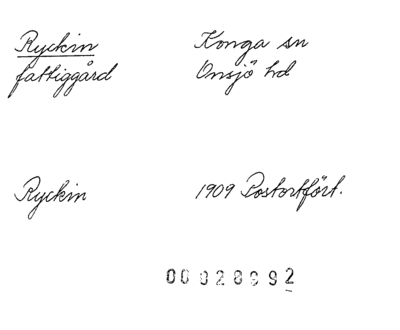 Ryckin Konga sn
fattiggård Onsjö hd
Ryckin 1909 Postortfört.